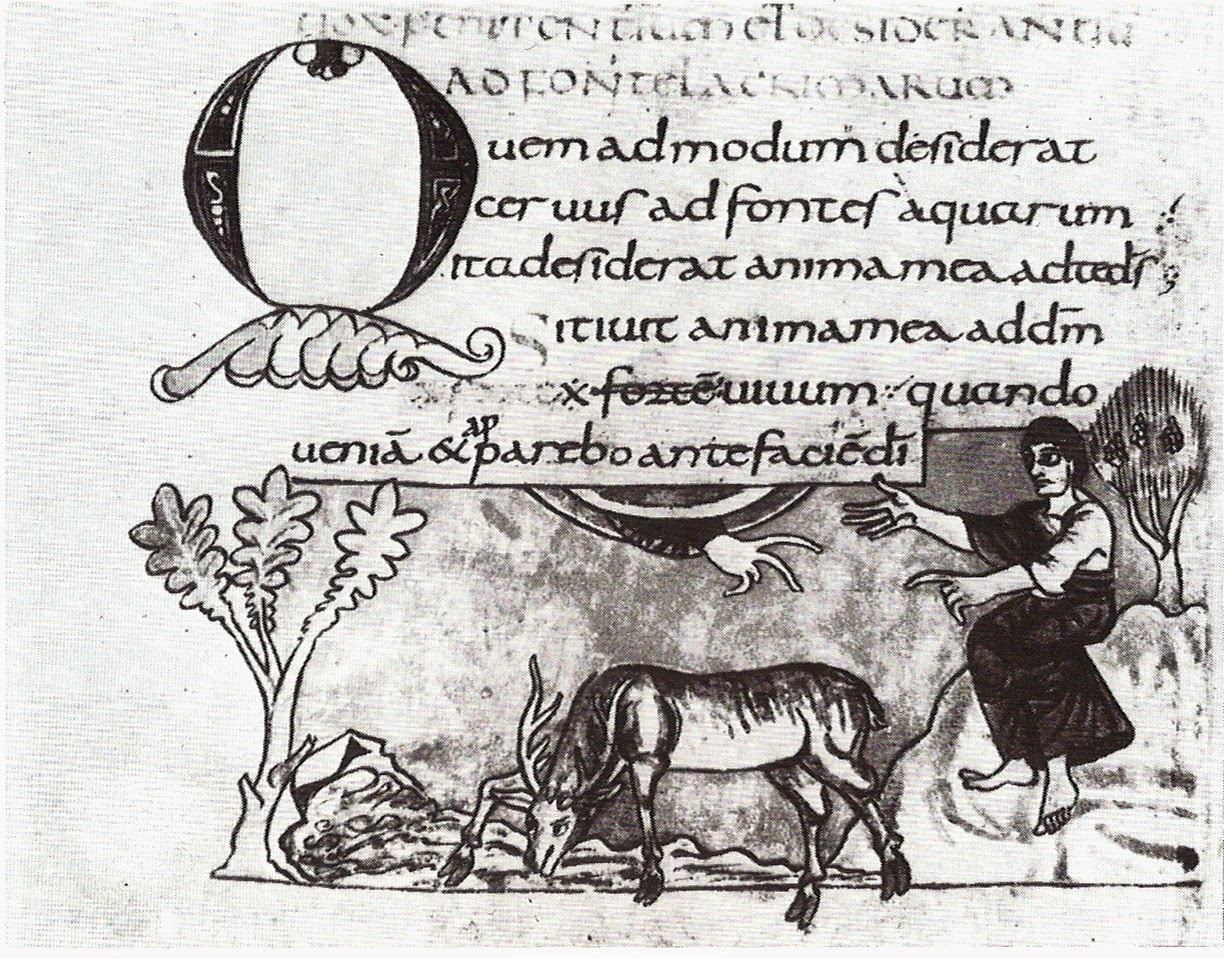 PENITENTIUM ET DESIDERANTIU
AD FONTE LACRIMARUM
Quem ad modum desiderat
ceruus ad fontes aquarum
ita desiderat anima mea ad te ds;
Sitiuit anima mea ad dm
fontē uiuum quando
ueniā & apparebo ante faciē di